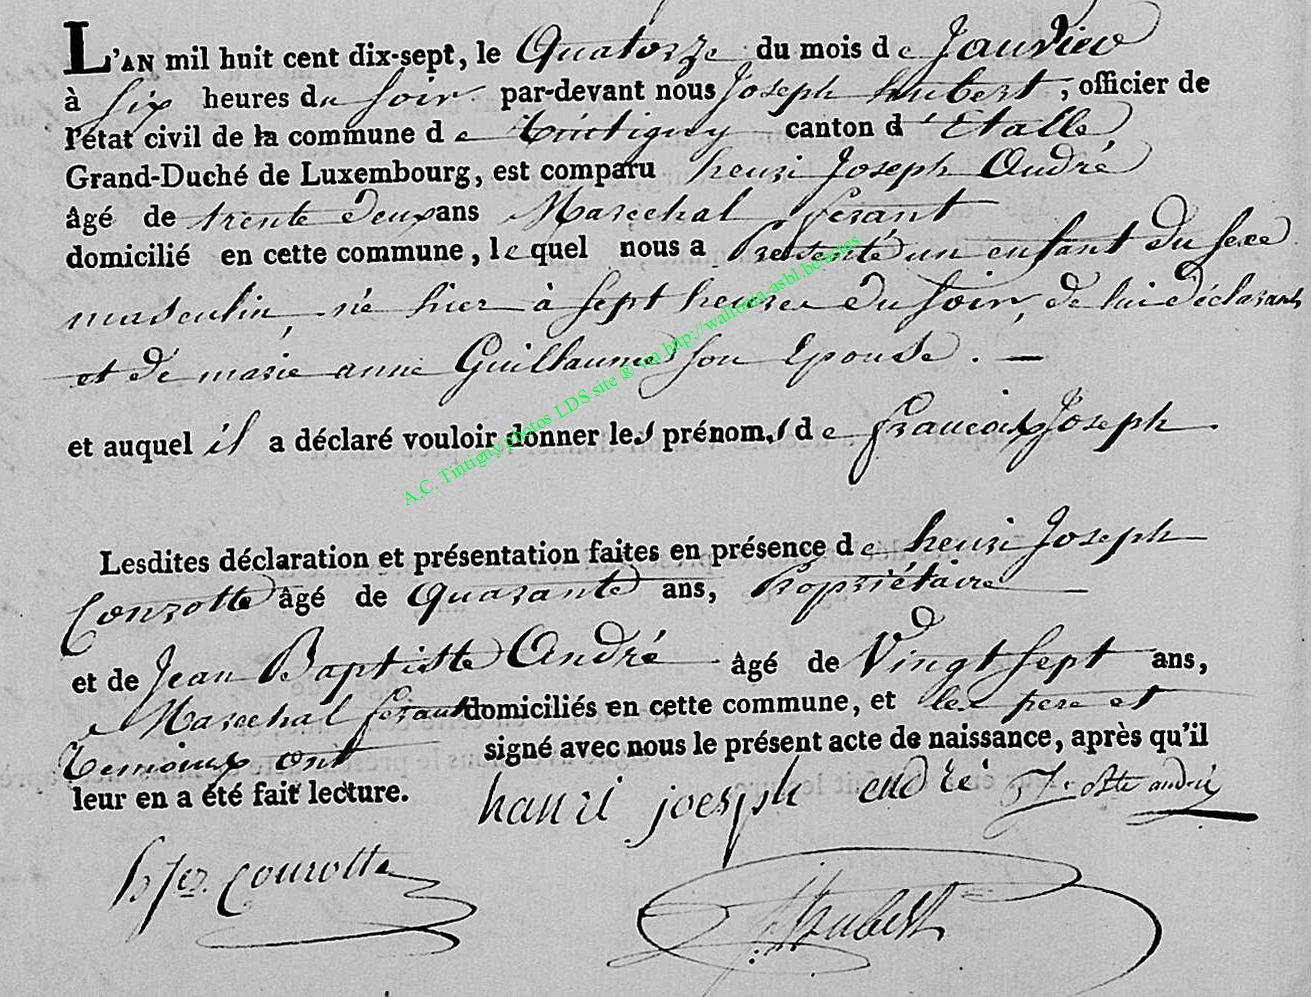 L'AN mil huit cent dix-sept, le Quatorze du mois de Janvier
à six heures du soir par-devant nous Joseph hubert, officier de
l'état civil de la commune de tintigny canton d'Etalle
Grand-Duché de Luxembourg, est comparu henri Joseph André
âgé de trente deux ans Marechal ferant
domicilié en cette commune, lequel nous a Presenté un enfant du sexe
masculin, né hier à sept heures du soir, de lui déclarant
et de marie anne Guillaume son Epouse. —
et auquel il a déclaré vouloir donner les prénoms de francois Joseph.
Lesdites déclaration et présentation faites en présence de henri Joseph
Conrotte âgé de quarante ans, Propriétaire
et de Jean Baptiste André âgé de Vingt sept ans,
Marechal ferant domiciliés en cette commune, et les pere et
temoins ont signé avec nous le présent acte de naissance, après qu'il
leur en a été fait lecture.
hanri joesph andré J. Bte andré
h Jos. Conrotte
Hubert
A.C. Tintigny photos LDS site @ via http://wallonia-asbl.be/actes